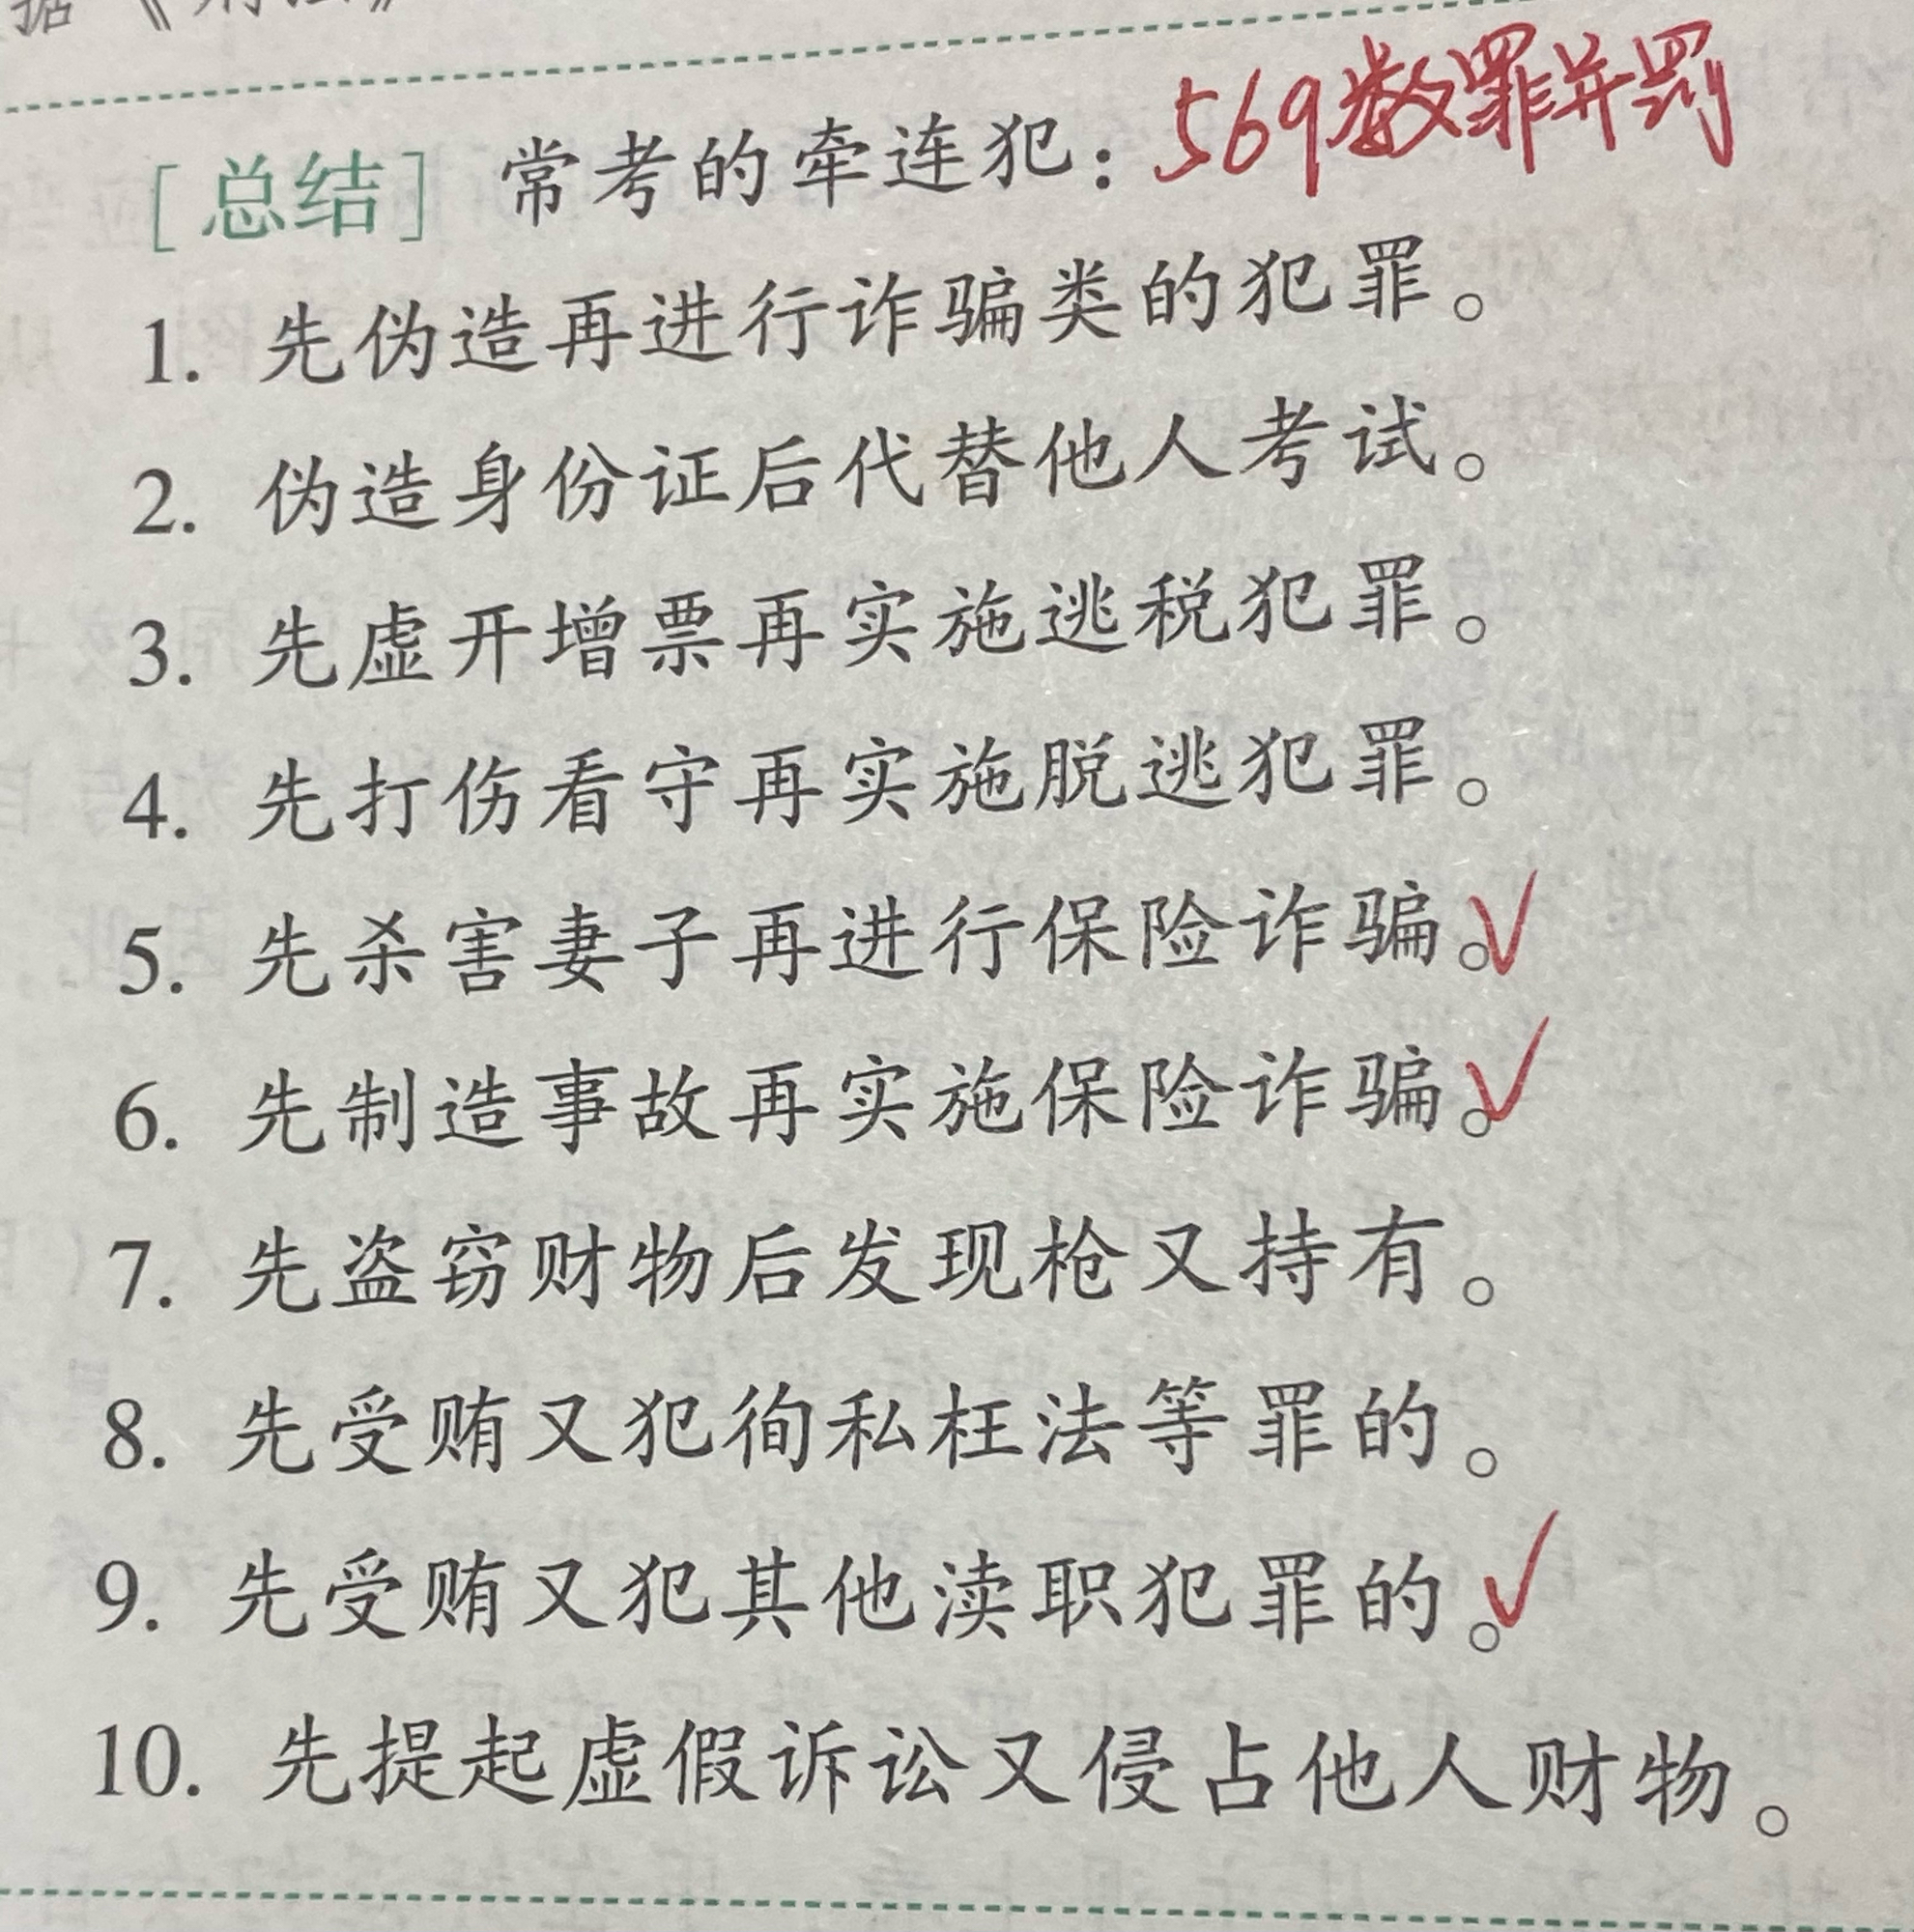 据《
[总结] 常考的牵连犯：569数罪并罚
1. 先伪造再进行诈骗类的犯罪。
2. 伪造身份证后代替他人考试。
3. 先虚开增票再实施逃税犯罪。
4. 先打伤看守再实施脱逃犯罪。
5. 先杀害妻子再进行保险诈骗。✓
6. 先制造事故再实施保险诈骗。✓
7. 先盗窃财物后发现枪又持有。
8. 先受贿又犯徇私枉法等罪的。
9. 先受贿又犯其他渎职犯罪的。✓
10. 先提起虚假诉讼又侵占他人财物。